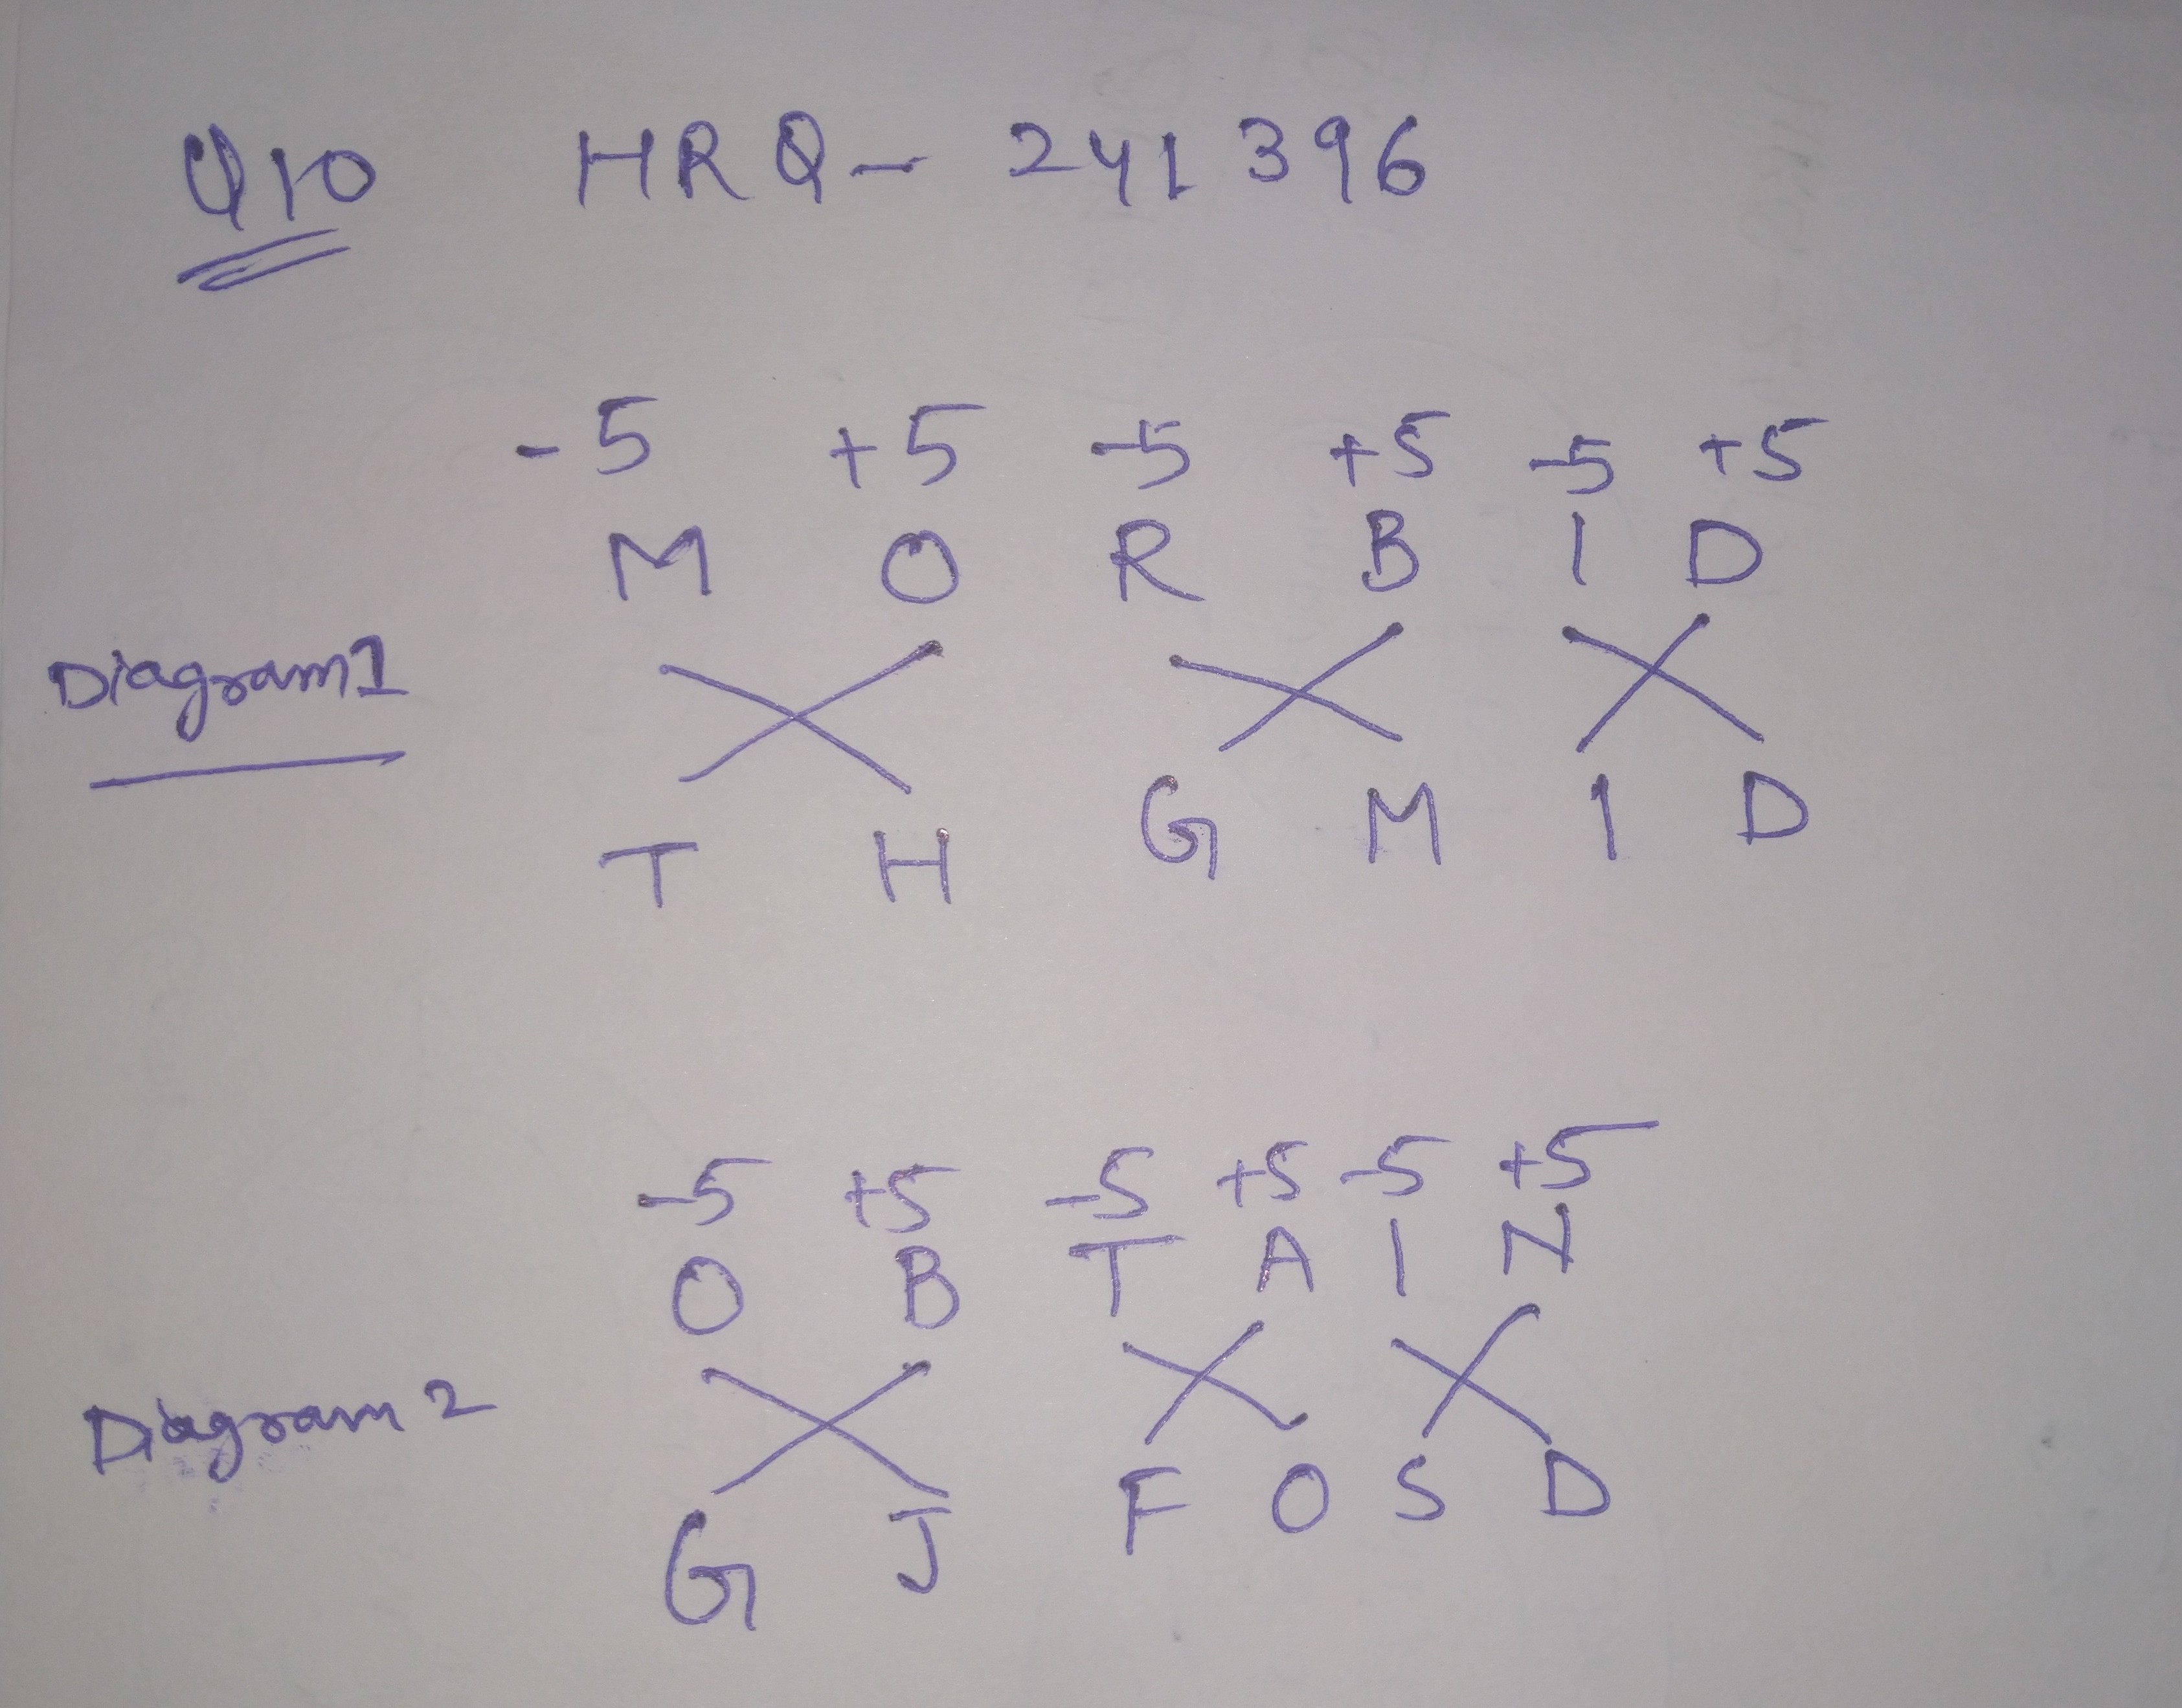 Q10 HRQ- 241396
-5 +5 -5 +5 -5 +5
M O R B I D
Diagram1
T H G M I D
-5 +5 -5 +5 -5 +5
O B T A I N
Diagram 2
G J F O S D